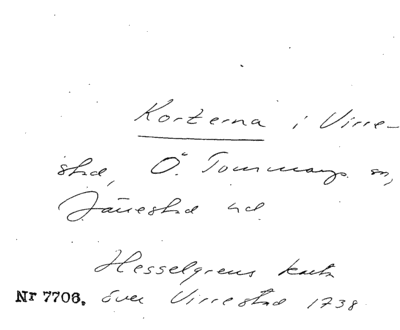 Korterna i Virre-
stad, Ö. Tommarps sn,
Järrestad hd.
Hesselgrens karta
Nr 7706. över Virrestad 1738